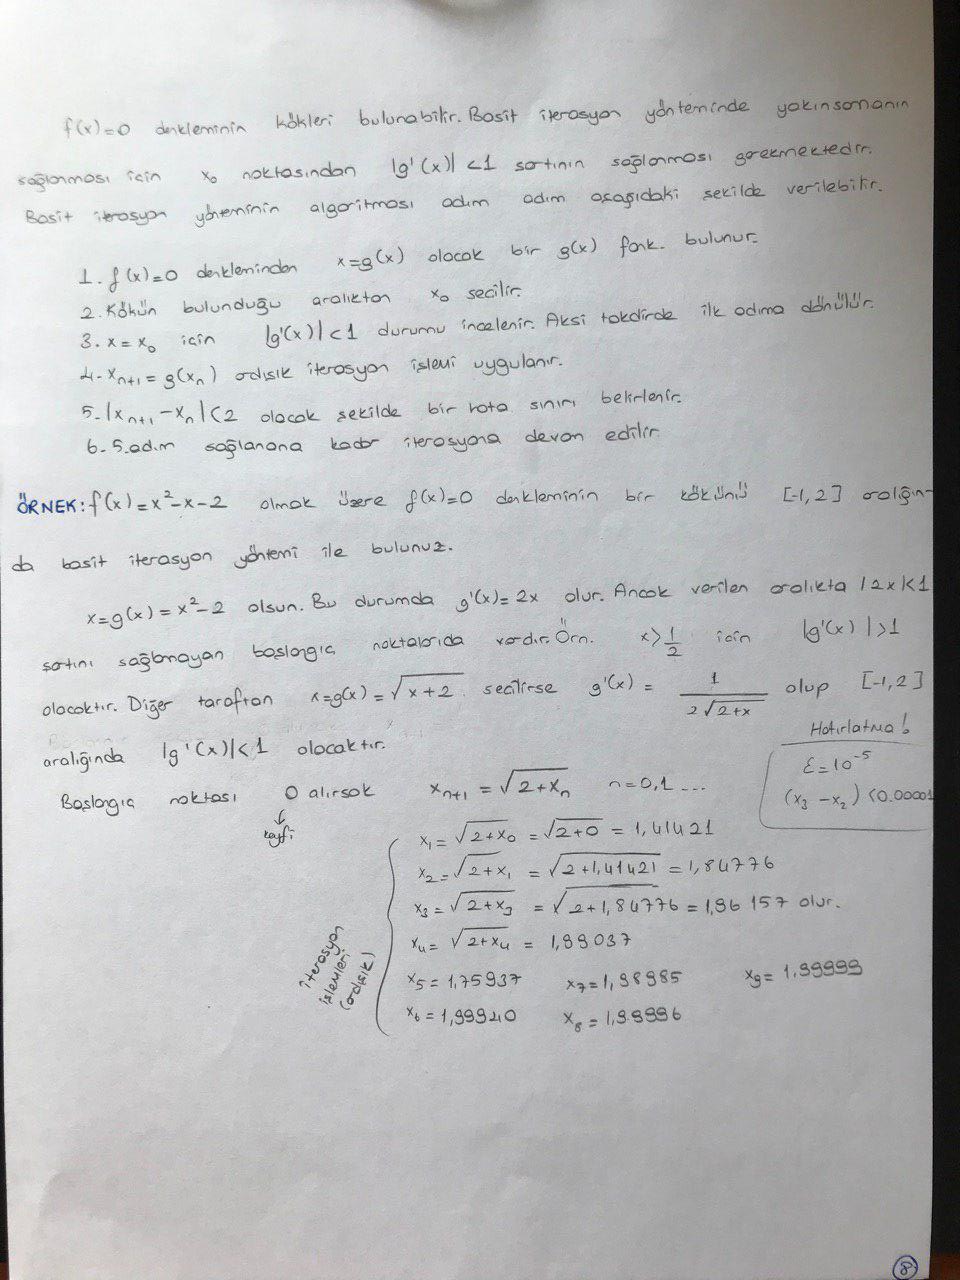 f(x)=0 denkleminin kökleri bulunabilir. Basit iterasyon yönteminde yakınsamanın
sağlanması için x₀ noktasından |g'(x)| <1 şartının sağlanması gerekmektedir.
Basit iterasyon yönteminin algoritması adım adım aşağıdaki şekilde verilebilir.
1. f(x)=0 denkleminden x=g(x) olacak bir g(x) fonk. bulunur.
2. Kökün bulunduğu aralıktan x₀ seçilir.
3. x=x₀ için |g'(x)|<1 durumu incelenir. Aksi takdirde ilk adıma dönülür.
4. xₙ₊₁ = g(xₙ) ardışık iterasyon işlemi uygulanır.
5. |xₙ₊₁ - xₙ|<2 olacak şekilde bir hata sınırı belirlenir.
6. 5.adım sağlanana kadar iterasyona devam edilir.
ÖRNEK: f(x) = x²-x-2 olmak üzere f(x)=0 denkleminin bir kökünü [-1,2] aralığın-
da basit iterasyon yöntemi ile bulunuz.
x=g(x) = x²-2 olsun. Bu durumda g'(x)= 2x olur. Ancak verilen aralıkta |2x|<1
şartını sağlamayan başlangıç noktalarıda vardır. Örn. x>1/2 için |g'(x)|>1
olacaktır. Diğer taraftan x=g(x) = √(x+2) seçilirse g'(x) = 1/(2√(2+x)) olup [-1,2]
aralığında |g'(x)|<1 olacaktır.
Hatırlatma!
ε=10⁻⁵
(x₃ -x₂) <0.00001
Başlangıç noktası 0 alırsak xₙ₊₁ = √(2+xₙ) n=0,1 ...
↓
keyfi
iterasyon
işlemleri
(ardışık)
x₁ = √(2+x₀) = √(2+0) = 1,41421
x₂ = √(2+x₁) = √(2+1,41421) = 1,84776
x₃ = √(2+x₃) = √(2+1,84776) = 1,96157 olur.
x₄ = √(2+x₄) = 1,99037
x₅ = 1,75937 x₇ = 1,98985 x₉ = 1,99999
x₆ = 1,99940 x₈ = 1,99996
8